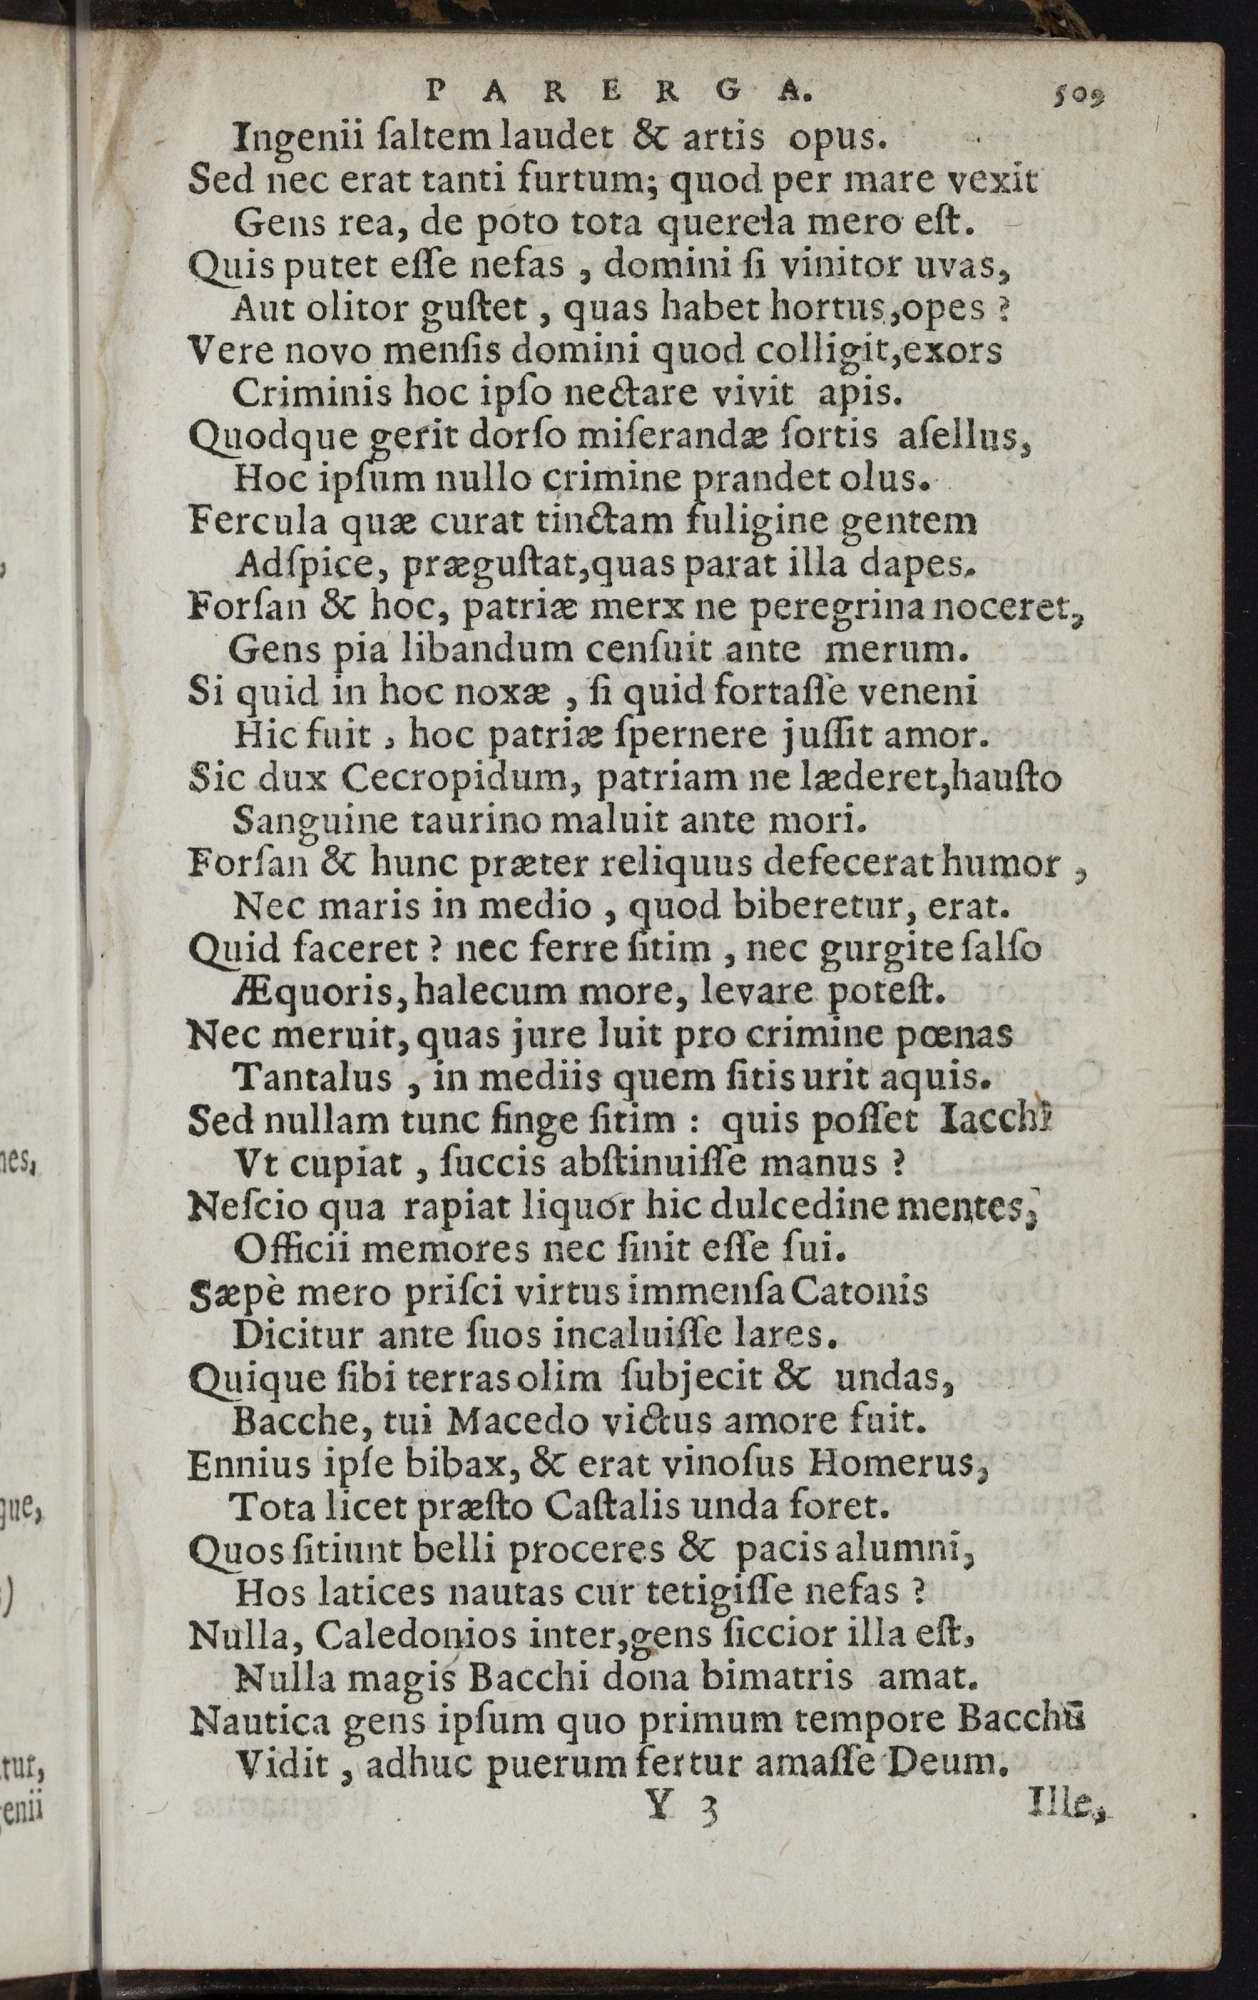 PARERGA. 509
Ingenii ſaltem laudet & artis opus.
Sed nec erat tanti furtum; quod per mare vexit
Gens rea, de poto tota querela mero eſt.
Quis putet eſſe nefas , domini ſi vinitor uvas,
Aut olitor guſtet , quas habet hortus,opes ?
Vere novo menſis domini quod colligit,exors
Criminis hoc ipſo nectare vivit apis.
Quodque gerit dorſo miſerandæ ſortis aſellus,
Hoc ipſum nullo crimine prandet olus.
Fercula quæ curat tinctam fuligine gentem
Adſpice, præguſtat,quas parat illa dapes.
Forſan & hoc, patriæ merx ne peregrina noceret,
Gens pia libandum cenſuit ante merum.
Si quid in hoc noxæ , ſi quid fortaſſe veneni
Hic fuit , hoc patriæ ſpernere juſſit amor.
Sic dux Cecropidum, patriam ne læderet,hauſto
Sanguine taurino maluit ante mori.
Forſan & hunc præter reliquus defecerat humor ,
Nec maris in medio , quod biberetur, erat.
Quid faceret ? nec ferre ſitim , nec gurgite ſalſo
Æquoris, halecum more, levare poteſt.
Nec meruit, quas jure luit pro crimine pœnas
Tantalus , in mediis quem ſitis urit aquis.
Sed nullam tunc finge ſitim : quis poſſet Iacchi
Vt cupiat , ſuccis abſtinuiſſe manus ?
Neſcio qua rapiat liquor hic dulcedine mentes,
Officii memores nec ſinit eſſe ſui.
Sæpè mero priſci virtus immenſa Catonis
Dicitur ante ſuos incaluiſſe lares.
Quique ſibi terras olim ſubjecit & undas,
Bacche, tui Macedo victus amore fuit.
Ennius ipſe bibax, & erat vinoſus Homerus,
Tota licet præſto Caſtalis unda foret.
Quos ſitiunt belli proceres & pacis alumni,
Hos latices nautas cur tetigiſſe nefas ?
Nulla, Caledonios inter,gens ſiccior illa eſt,
Nulla magis Bacchi dona bimatris amat.
Nautica gens ipſum quo primum tempore Bacchū
Vidit , adhuc puerum fertur amaſſe Deum.
Y 3 Ille,